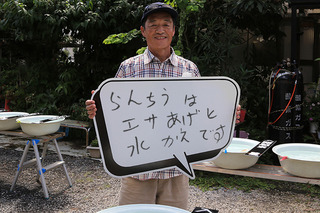 らんちうは
エサあげと
水かえです